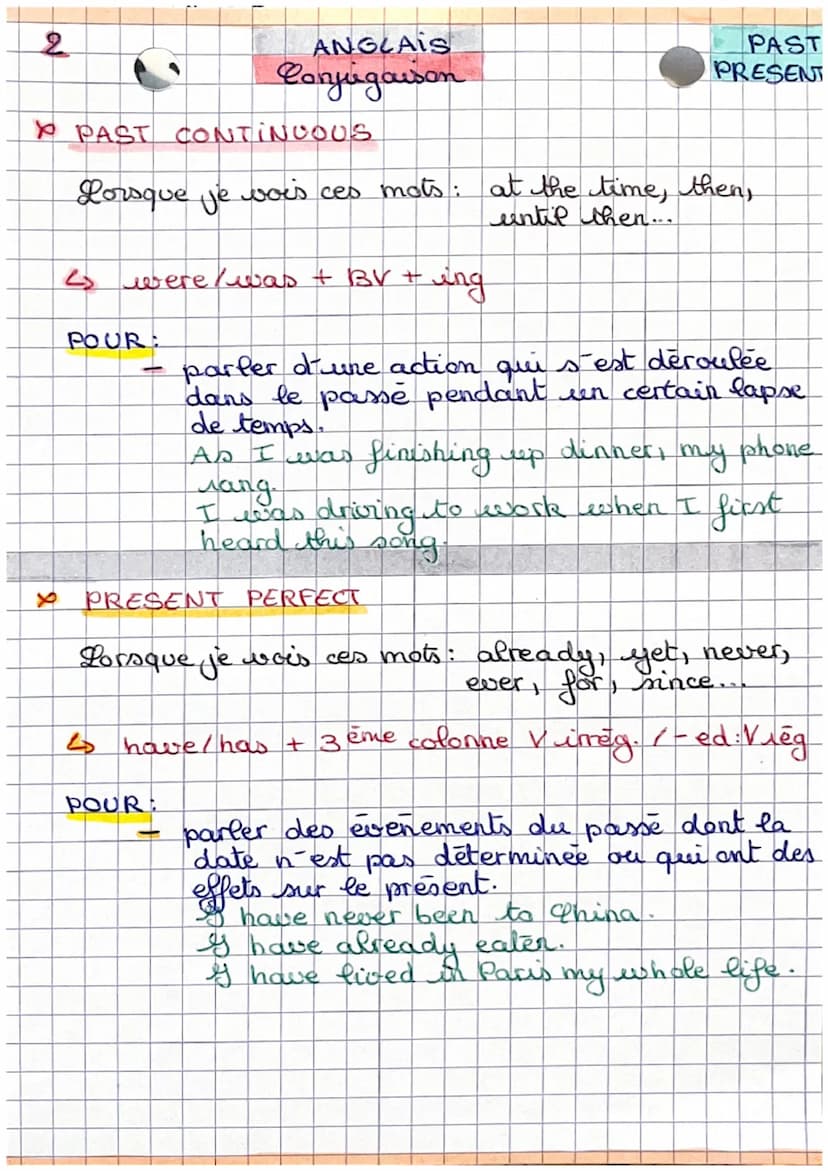 2
ANGLAIS
Conjugaison
PAST
PRESENT
* PAST CONTINUOUS
Lorsque je vois ces mots : at the time, then,
until then...
↳ were/was + BV + ing
POUR :
- parler d'une action qui s'est déroulée
dans le passé pendant un certain lapse
de temps.
As I was finishing up dinner, my phone
rang.
I was driving to work when I first
heard this song.
* PRESENT PERFECT
Lorsque je vois ces mots : already, yet, never,
ever, for, since...
↳ have/has + 3ème colonne V irrég. /-ed:V rég
POUR :
- parler des événements du passé dont la
date n'est pas déterminée ou qui ont des
effets sur le présent.
I have never been to China.
I have already eaten.
I have lived in Paris my whole life.